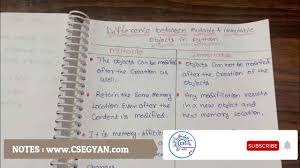 Difference between Mutable & Immutable
Objects in Python
Mutable
Immutable
The Objects can be modified
after the Creation as
well.
Objects can not be modified
after the Creation of the
Objects
Retain the Same Memory
location Even after the
Content is modified.
Any modification results
in a new object and
new memory location.
It is memory
NOTES : www.CSEGYAN.com
SUBSCRIBE